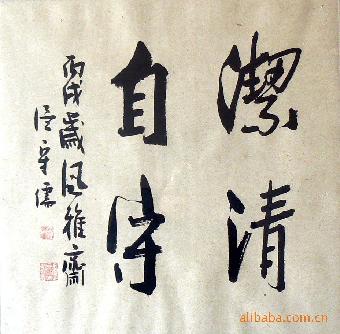 潔清
自守
丙戌歲風雅齋
守儒
alibaba.com.cn